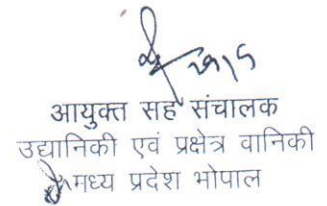 आयुक्त सह संचालक
उद्यानिकी एवं प्रक्षेत्र वानिकी
मध्य प्रदेश भोपाल